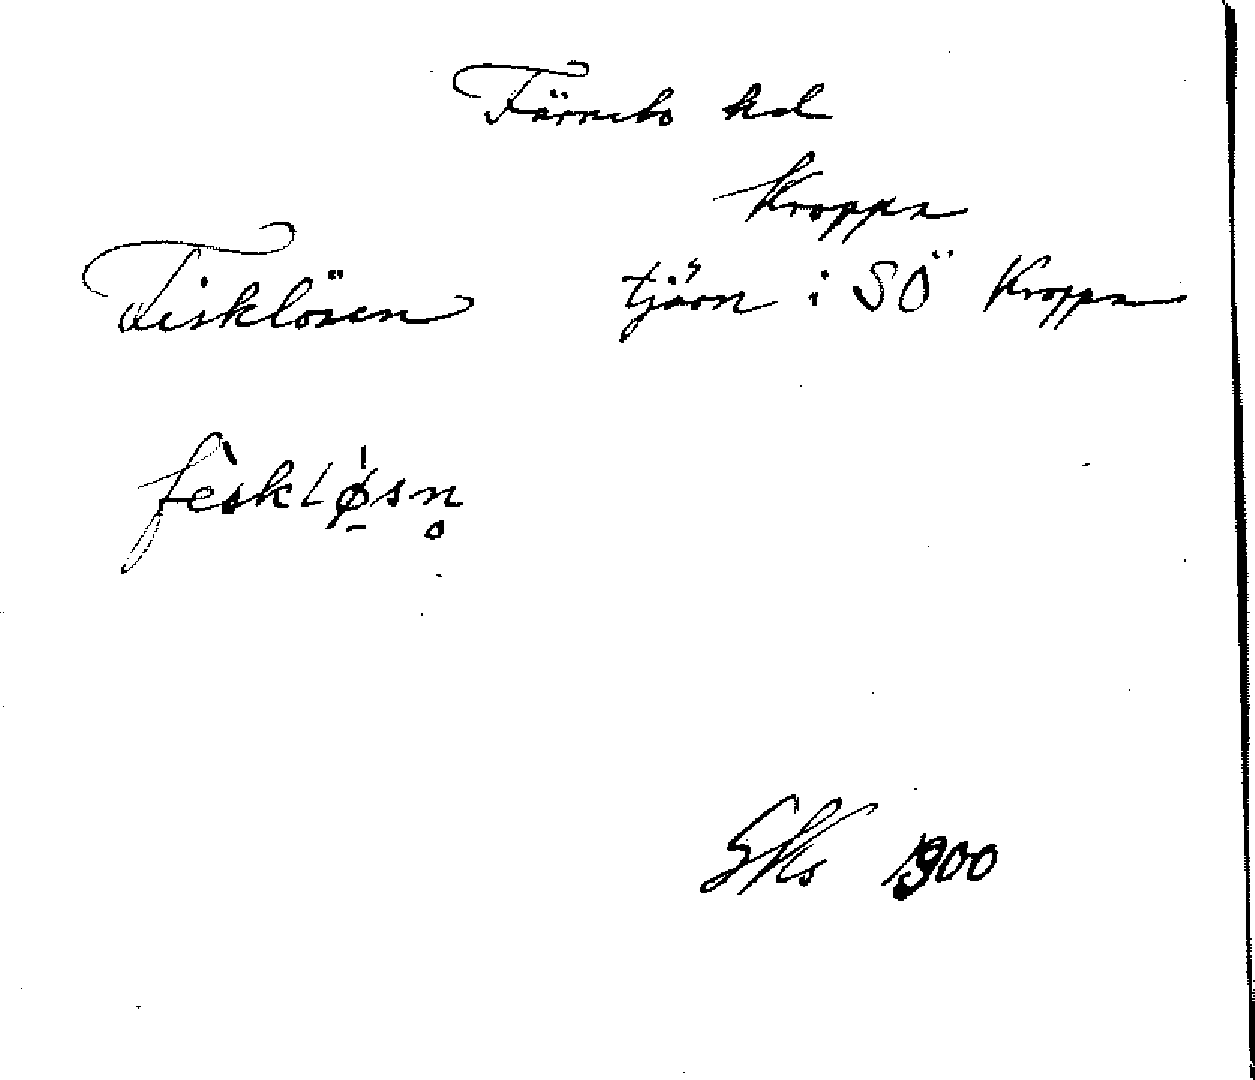 Färnebo hd
Kroppa
Fisklösen tjärn i SÖ Kroppa
fèskløsn̥
SKs 1900